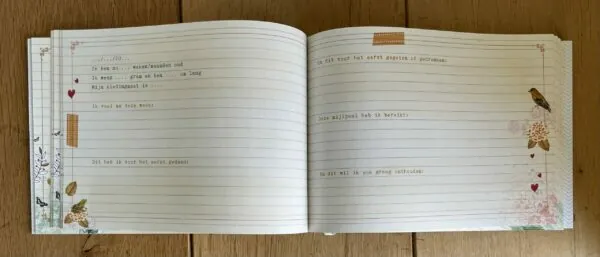 .../.../20...
Ik ben nu .... weken/maanden oud
Ik weeg .... gram en ben .... cm lang
Mijn kledingmaat is ....
Ik voel me deze week:
Dit heb ik voor het eerst gedaan:
Ik dit voor het eerst gegeten of gedronken:
Deze mijlpaal heb ik bereikt:
En dit wil ik nog graag onthouden: